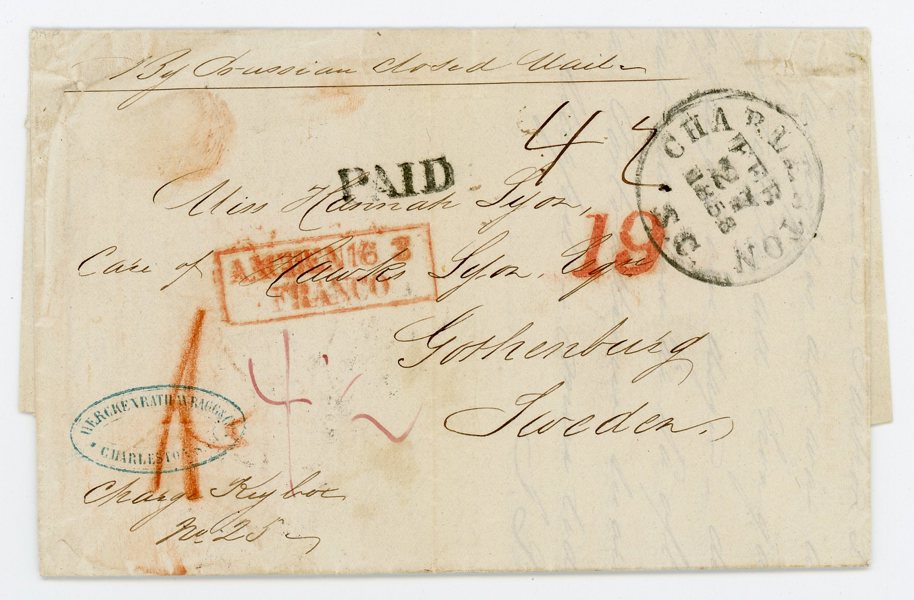 By Prussian Closed Mail
42
CHARLESTON S.C.
FEB
21
1858
PAID
Miss Hannah Lyon,
19
Care of Lyon, Esqr
AACHEN 16 3
FRANCO
Gothenburg
42
Sweden
BERCKENRATH WRAGG & Co
CHARLESTON
Charge Keybox
No 25